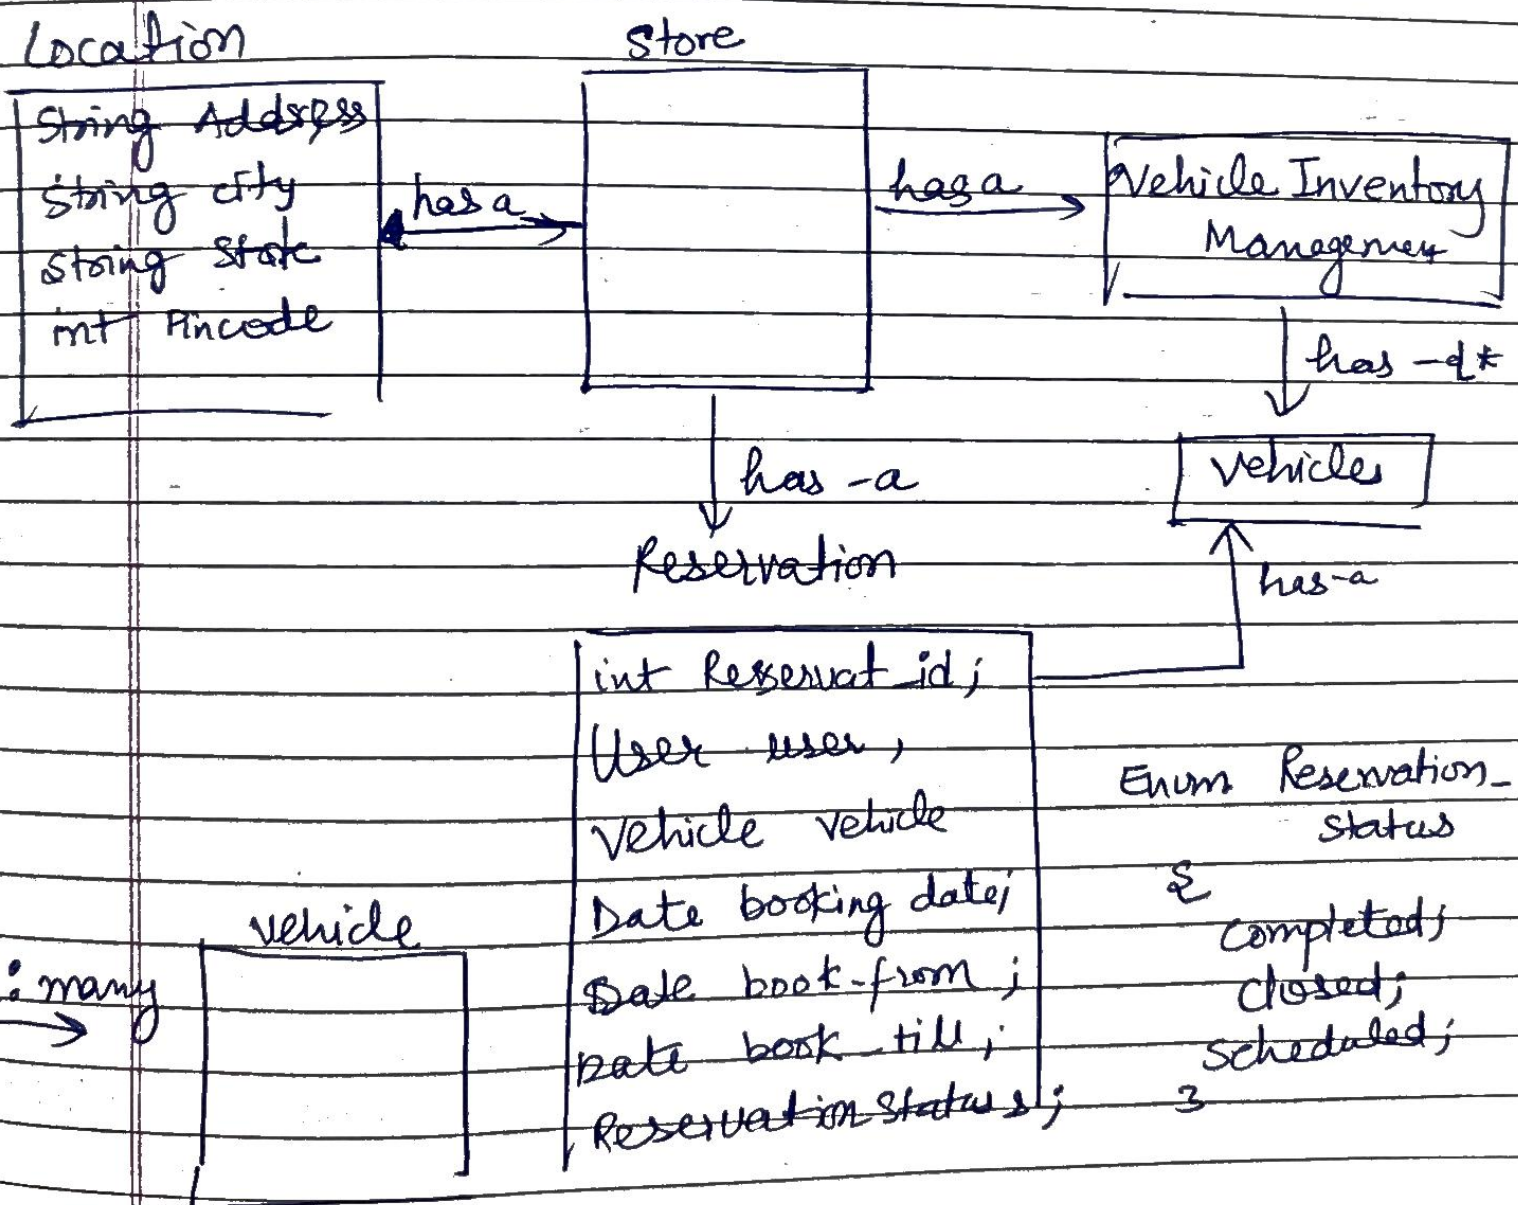 Location
String Address
String city
String State
int Pincode
has a
Store
has a
Vehicle Inventory
Management
has -a*
Vehicles
has -a
Reservation
has-a
int Reservat_id;
User user,
Vehicle vehicle
Date booking date;
Date book-from;
Date book_till;
Reservation Status;
Enum Reservation_
Status
{
completed;
closed;
scheduled;
}
vehicle
: many